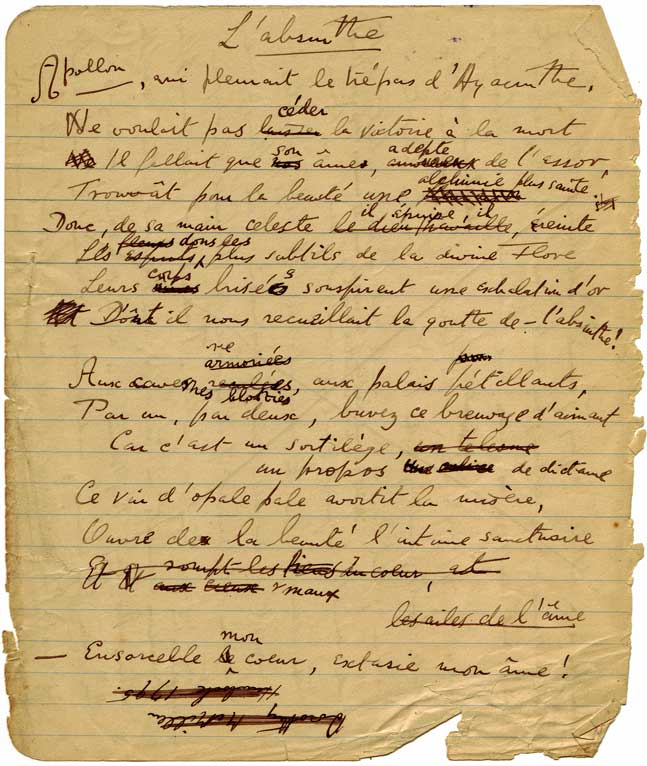 L'absinthe
Apollon, qui pleurait le trépas d'Hyacinthe,
Ne voulait pas laisser céder la victoire à la mort
Il fallait que son âme, adepte de l'essor,
Trouvât pour la beauté une alchimie plus sainte
Donc, de sa main celeste il épuise, il éreinte
Les dons les plus subtils de la divine Flore
Leurs corps brisés souspirent une exhalation d'or
Dont il nous recueillait la goutte de - l'absinthe!
Aux cavernes blotties, aux palais pétillants,
Par un, par deux, buvez ce breuvage d'aimant
Car c'est un sortilège,
un propos de dictame
Ce vin d'opale pale avortit la misère,
Ouvre de la beauté l'intime sanctuaire
Et rompt les liens du coeur, et
aux cieux maux
les ailes de l'âme
— Ensorcelle mon coeur, extasie mon âme!